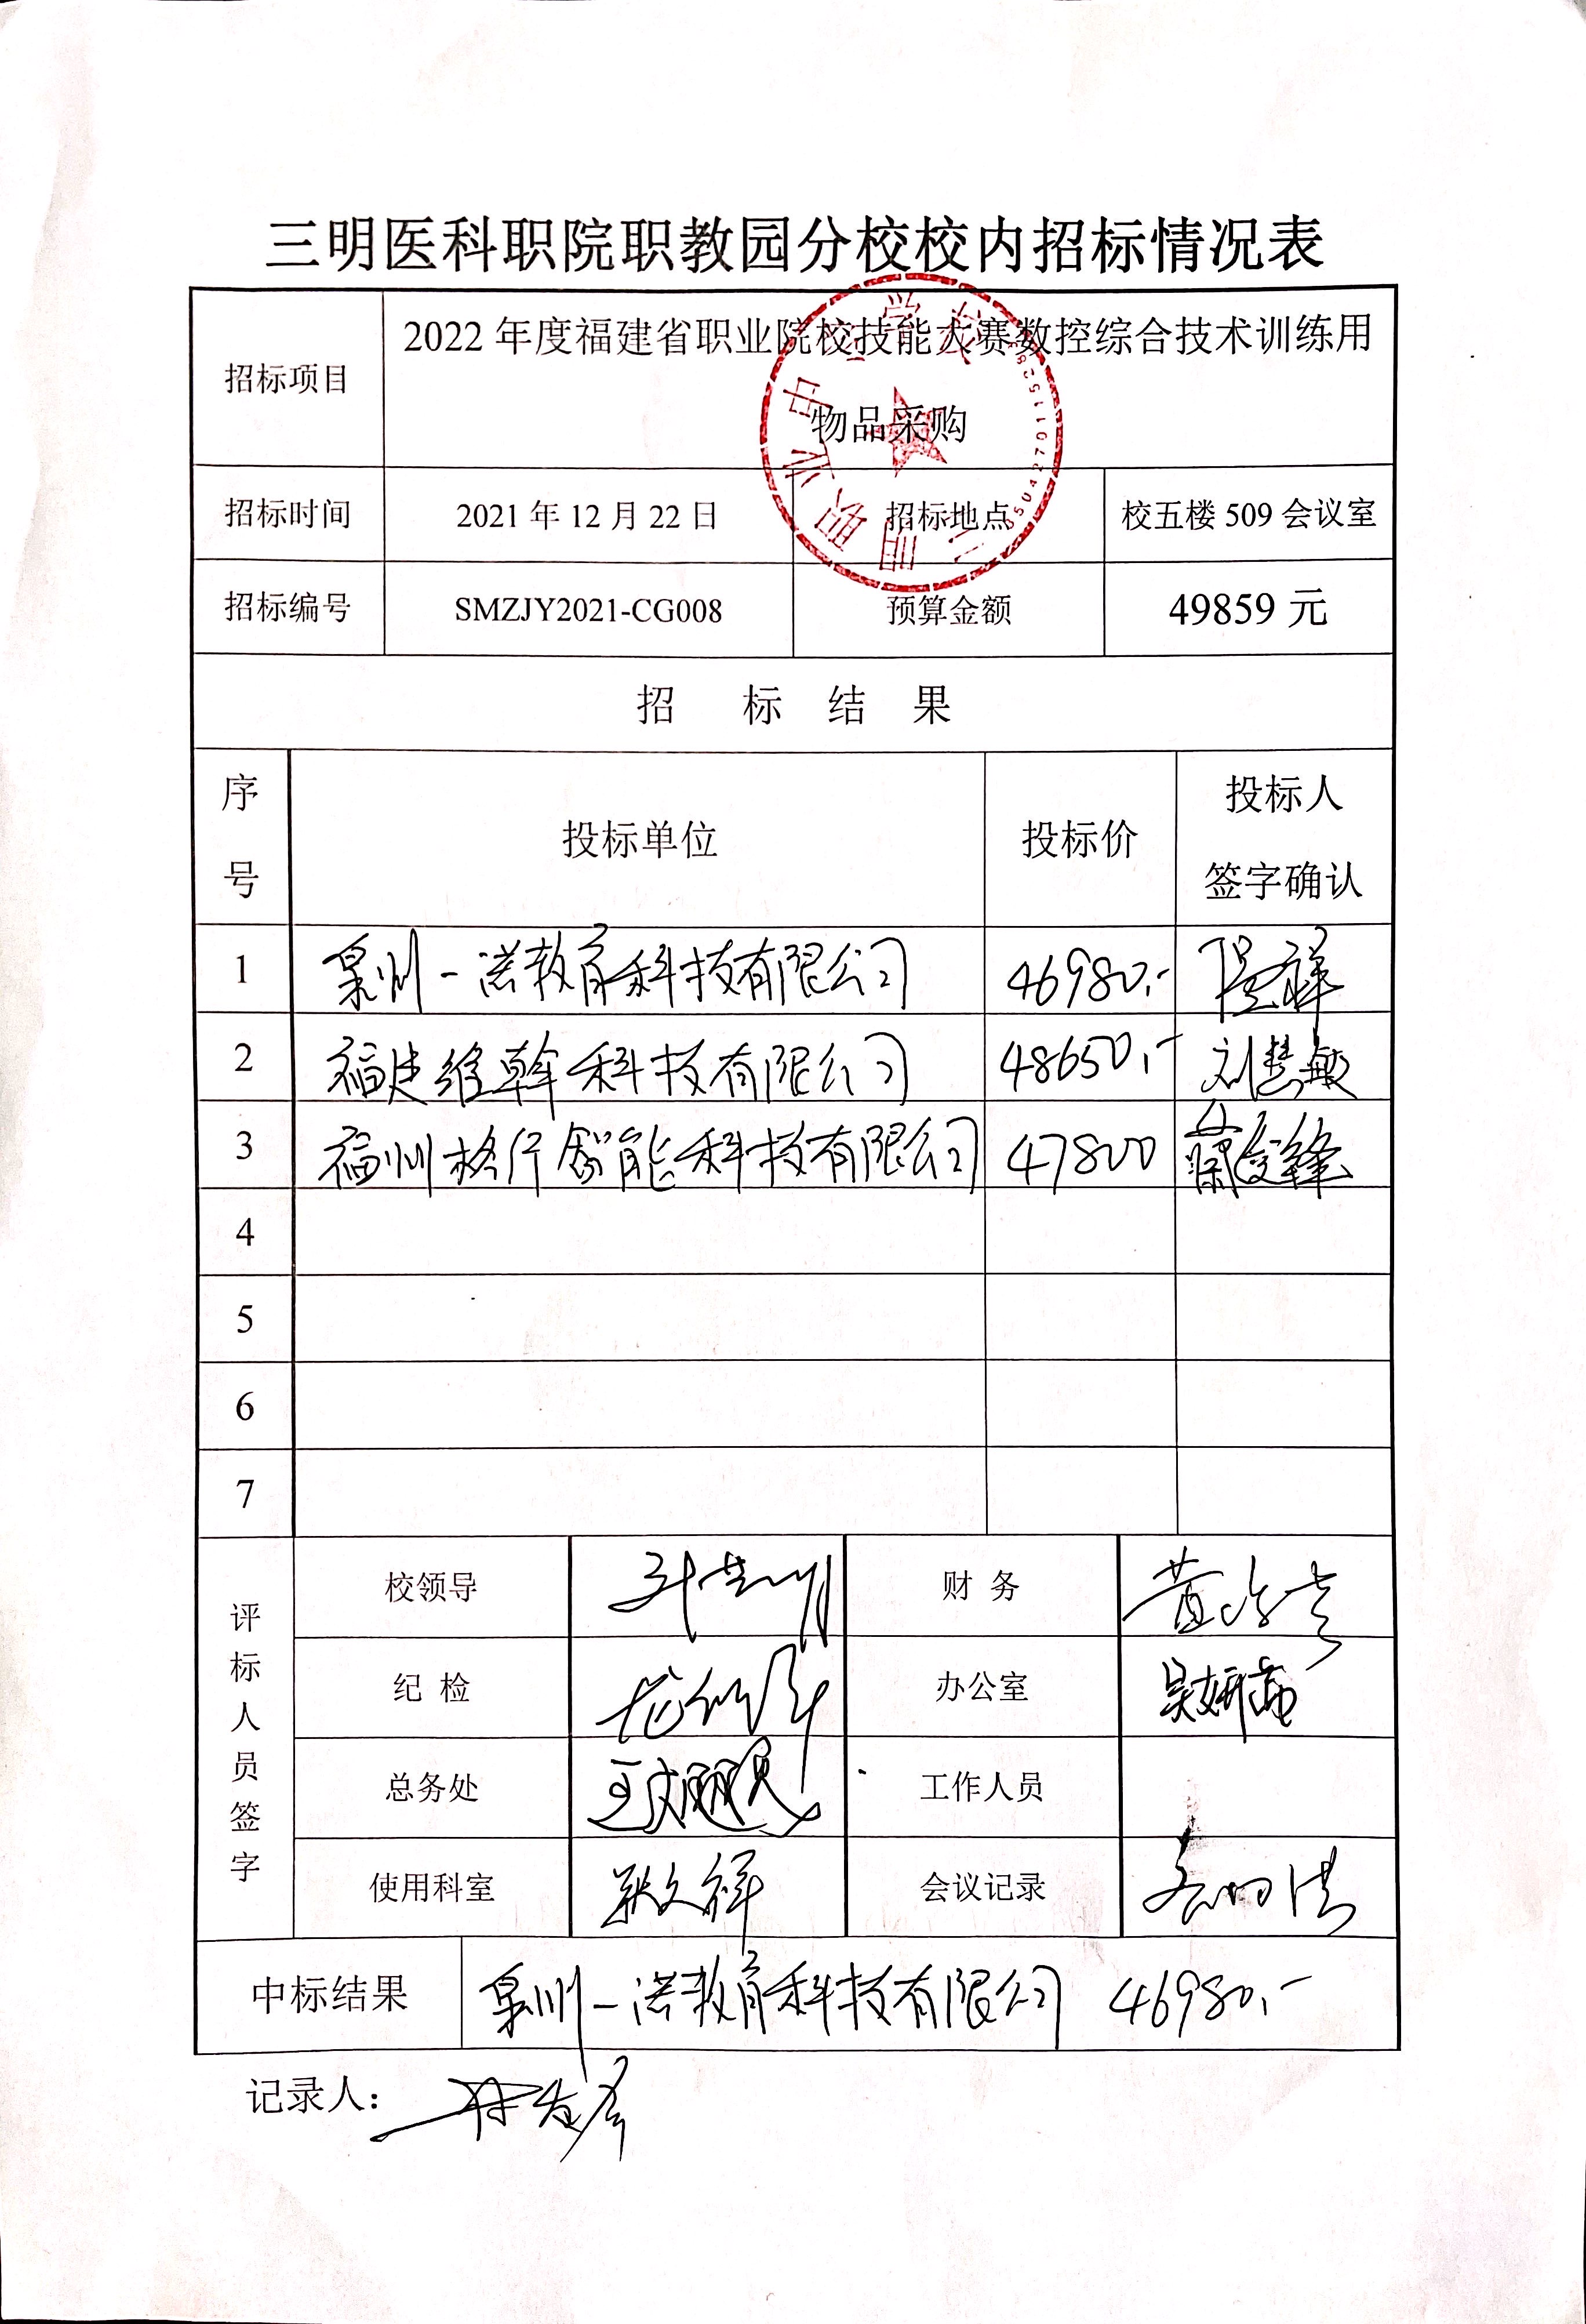 三明医科职院职教园分校校内招标情况表
招标项目
2022 年度福建省职业院校技能大赛数控综合技术训练用
物品采购
三明职业中专学校
招标时间 2021 年 12 月 22 日 招标地点 校五楼 509 会议室
招标编号 SMZJY2021-CG008 预算金额 49859 元
招 标 结 果
序号 投标单位 投标价 投标人签字确认
1 泉州一诺教育科技有限公司 46980.-
2 福建维幹科技有限公司 48650.- 刘慧敏
3 福州格行智能科技有限公司 47800 蔡俊锋
4
5
6
7
评标人员签字
校领导 财 务
纪 检 办公室 吴妍茹
总务处 工作人员
使用科室 会议记录
中标结果 泉州一诺教育科技有限公司 46980.-
记录人：